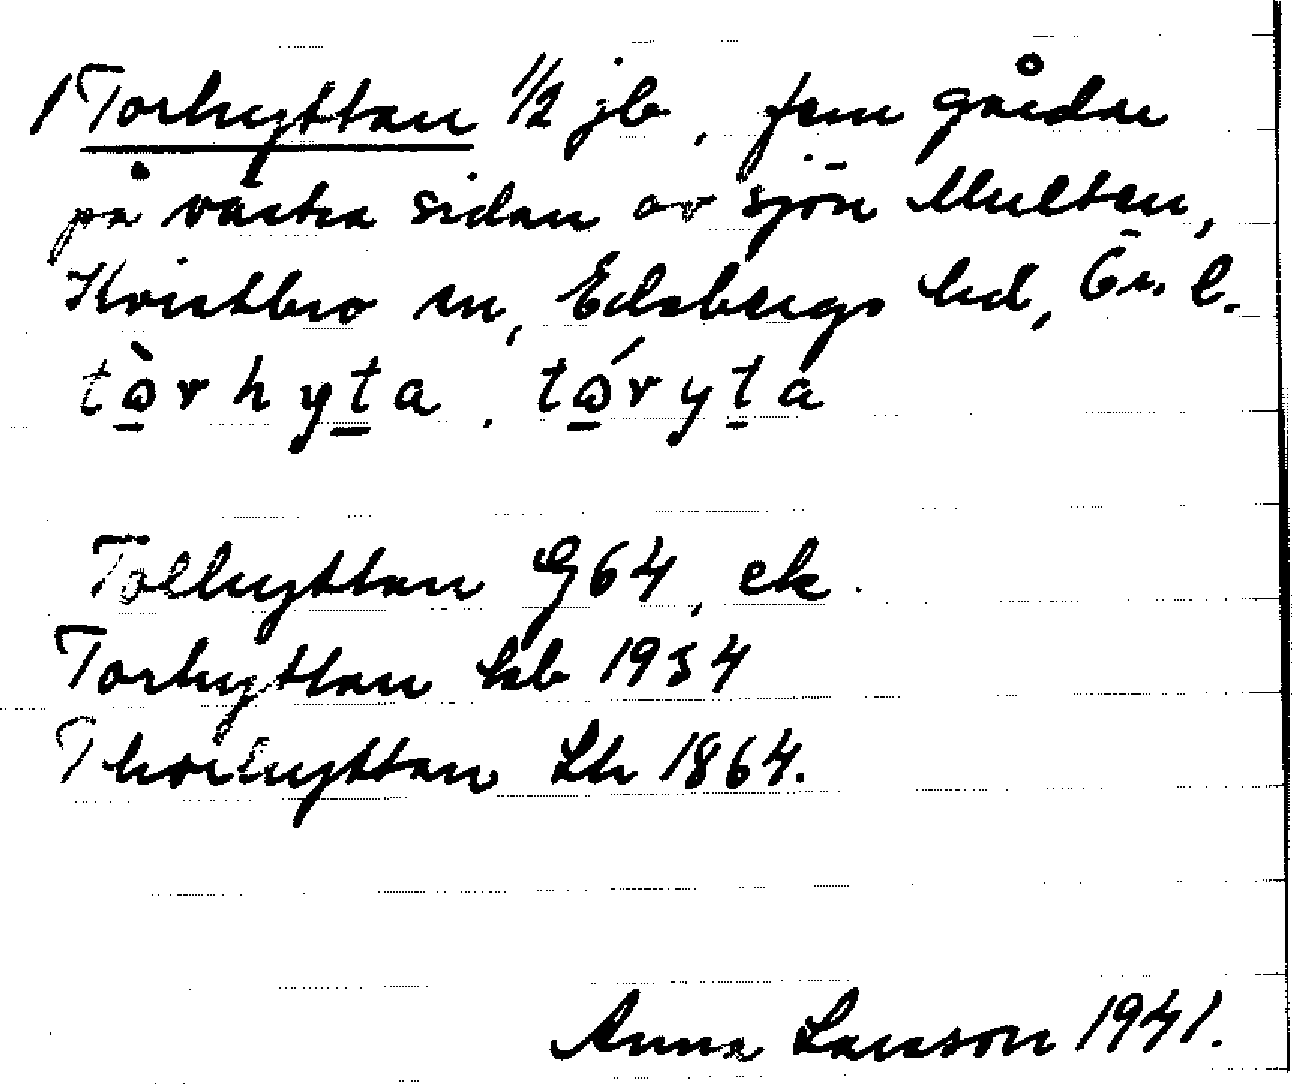 1 Torhyttan 1/2 jb, fem gårdar
på västra sidan av sjön Multen,
Kvistbro sn, Edsbergs hd, Ör. l.
tὼrhyta. tώryta
Tolhyttan G64, ek.
Torhyttan hsb 1934
Thorhyttan Lth 1864.
Anna Larsson 1941.